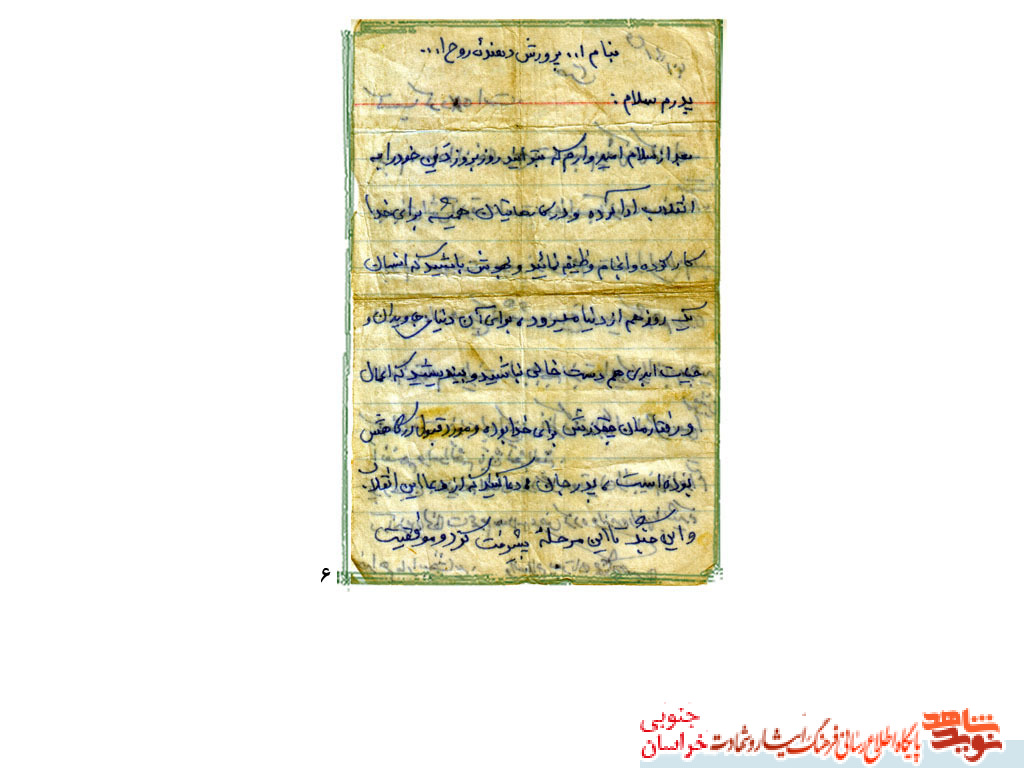 بنام ا... پرورش دهندهٔ روح ا...
پدرم سلام :
بعد از سلام امیدوارم که بتوانید روز بروز دین خود را به
انقلاب ادا کرده و در کارهایتان همیشه برای خدا
کار کرده و انجام وظیفه نمائید و بهوش باشید که انسان
یک روز هم از دنیا میرود، برای آن دنیای جاویدان و
ابدی هم دست خالی نباشید و بیندیشید که اعمال
و رفتارمان چقدرش برای خدا بوده و مورد قبول درگاهش
بوده است، پدر جان، دعا کنید که از دعا این انقلاب
و این جنگ تا این مرحلهٔ پیشرفت کرد و موفقیت
۶
نوید شاهد
پایگاه اطلاع رسانی فرهنگ ایثار و شهادت
جنوبی
خراسان